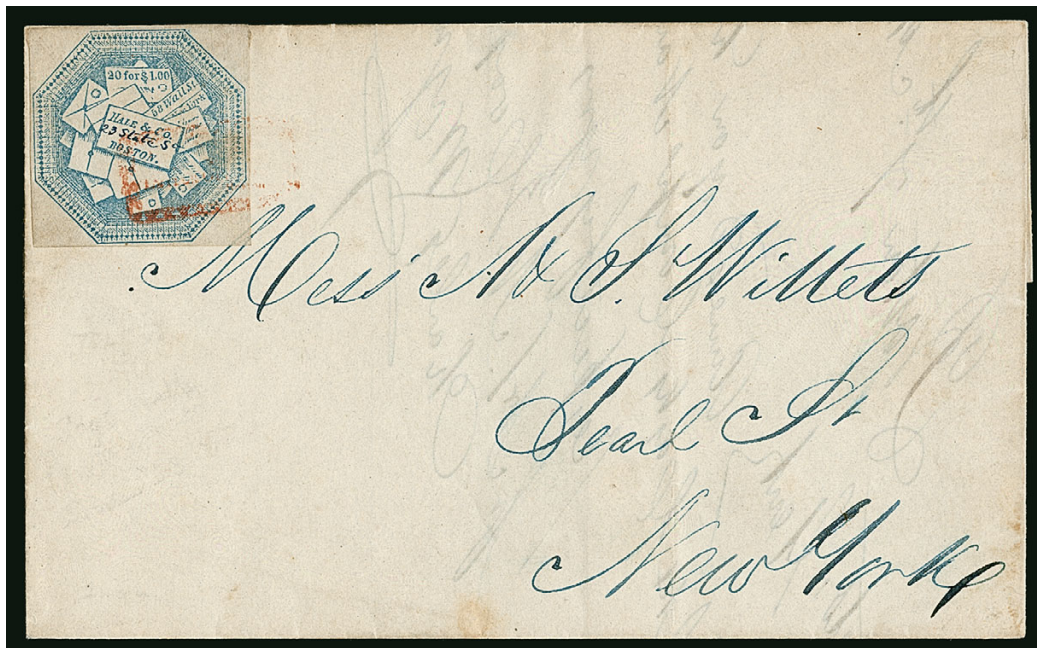 20 for $1.00
58 Wall St
HALE & CO.
23 State S
BOSTON.
Mess N & S. Willets
Pearl St
New York